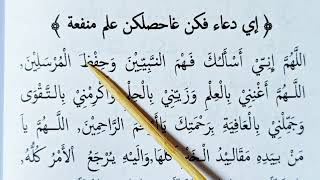 ﴿ إي دعاء فكن غاحصلكن علم منفعة ﴾
اللَّهُمَّ إِنِّيْ أَسْأَلُكَ فَهْمَ النَّبِيِّيْنَ وَحِفْظَ الْمُرْسَلِيْنَ،
اللَّهُمَّ أَغْنِنِيْ بِالْعِلْمِ وَزَيِّنِّيْ بِالْحِلْمِ وَأَكْرِمْنِيْ بِالتَّقْوَى
وَجَمِّلْنِيْ بِالْعَافِيَةِ بِرَحْمَتِكَ يَا الرَّاحِمِيْنَ، اللَّهُمَّ يَا
مَنْ بِيَدِهِ مَقَالِيْدُ كُلِّهَا، وَإِلَيْهِ يَرْجَعُ الْأَمْرُ كُلُّهُ،